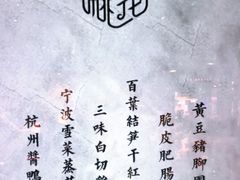 黃豆豬腳
脆皮肥腸
百葉結笋干紅
三味白切雞
宁波雪菜蒸
杭州醬鴨